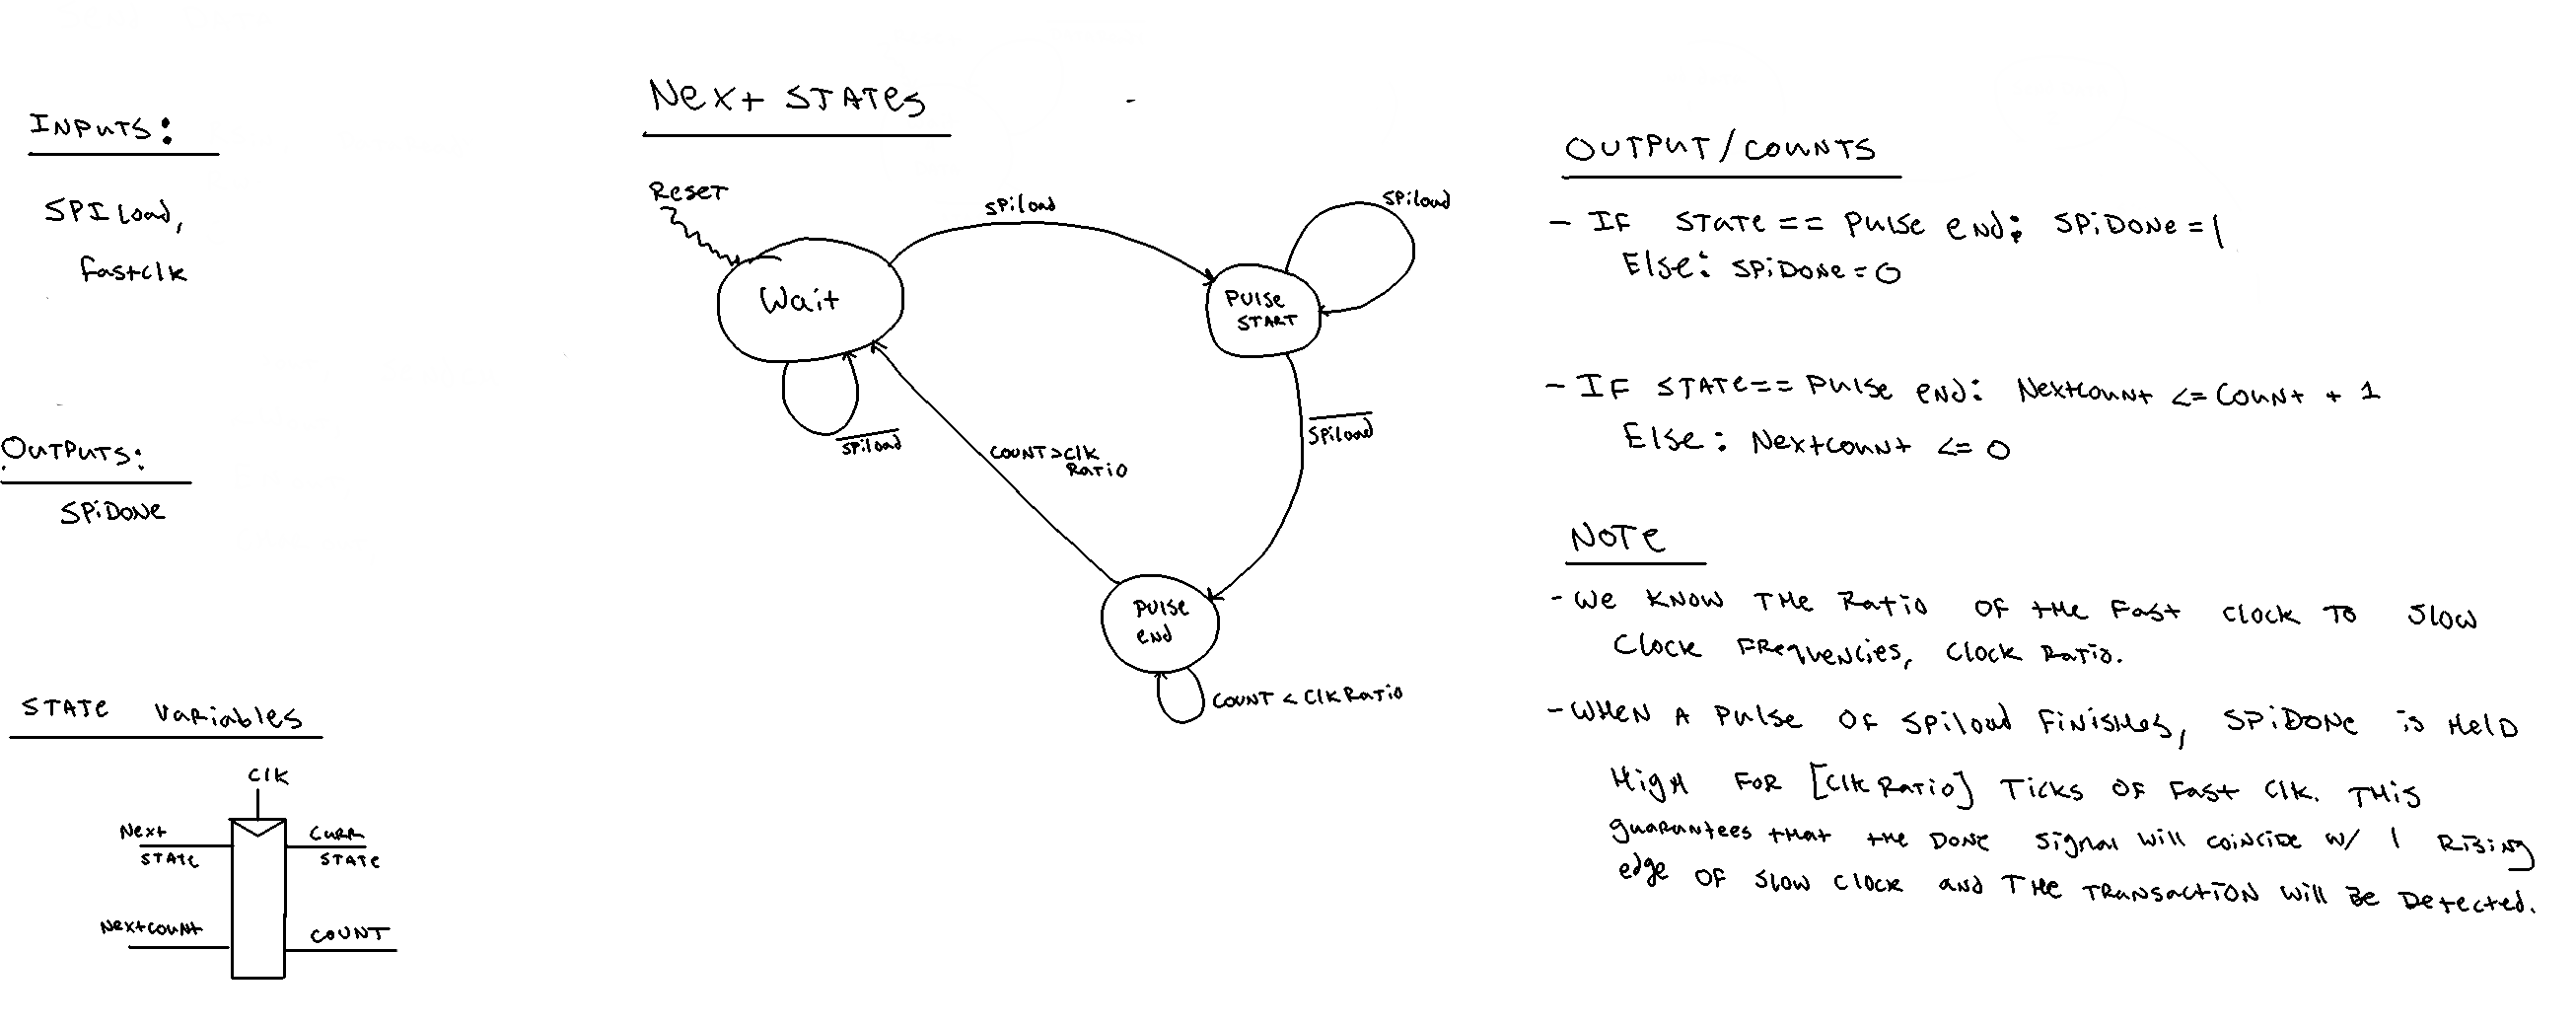 INPUTS:
SPILoad,
fastclk
OUTPUTS:
SPiDONe
STATE Variables
Clk
Next
STATE
CURR
STATE
Nextcount
COUNT
Next STATES
Reset
SPiload
SPiload
Wait
PULSE
START
SPiload
SPiload
COUNT>Clk
Ratio
PULSE
end
COUNT < ClkRatio
OUTPUT/COUNTS
- IF STATE == Pulse end: SPiDONe = 1
Else: SPiDONe = 0
- IF STATE == Pulse end: Nextcount <= Count + 1
Else: Nextcount <= 0
NOTE
- We KNOW THE Ratio OF the Fast Clock TO Slow
Clock Frequencies, Clock Ratio.
- WHEN A Pulse OF SPiload FiNiSHes, SPiDONe is Held
High FOR [Clk Ratio] Ticks OF Fast Clk. THis
guarantees that the Done signal will coincide w/ 1 Rising
edge OF Slow Clock and THe Transaction will Be Detected.